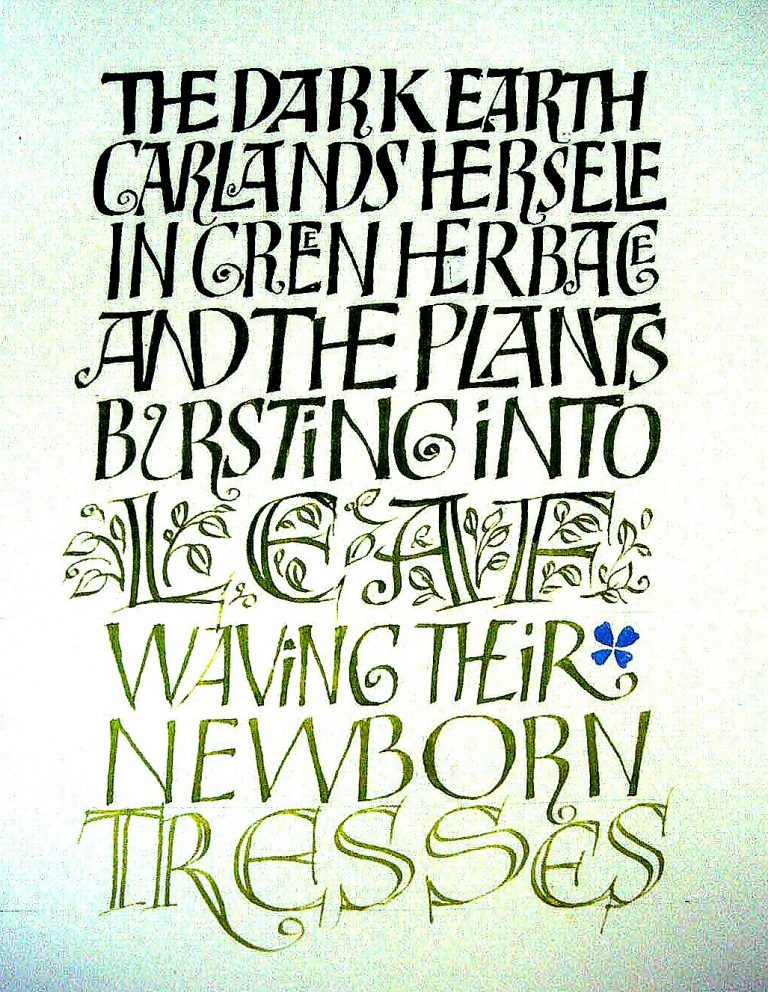 THE DARK EARTH
GARLANDS HERSELF
IN GREEN HERBAGE
AND THE PLANTS
BURSTiNG iNTO
LEAF
WAViNG THEiR
NEWBORN
TRESSES